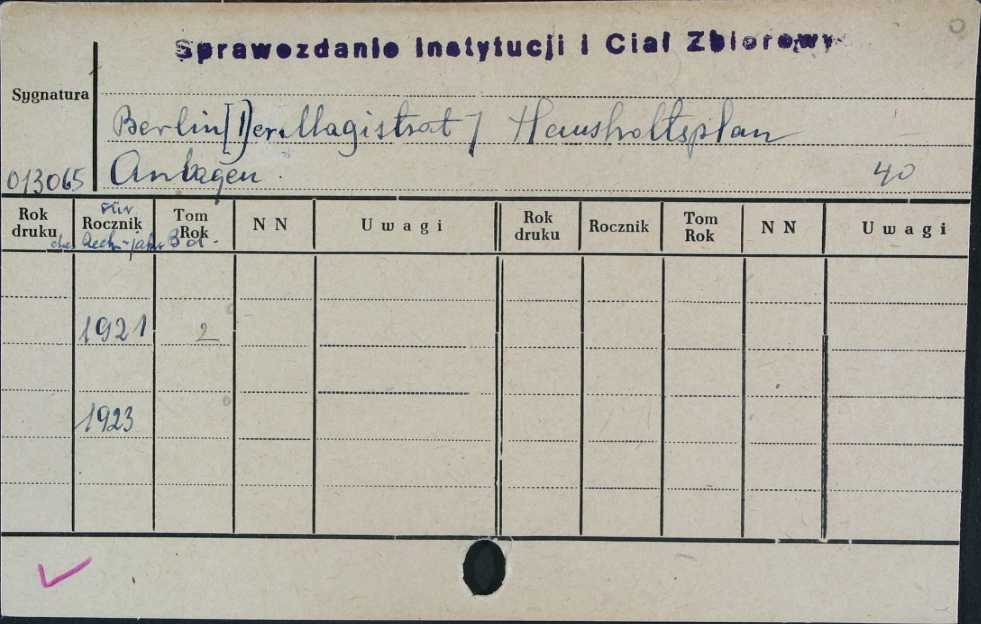 Sprawozdanie Instytucji i Ciał Zbiorowy
Sygnatura
Berlin[!]er. Magistrat / Haushaltsplan
013065 Anlagen. 40
Rok druku Rocznik Tom Rok N N Uwagi Rok druku Rocznik Tom Rok N N Uwagi
für
das Rech-jahr Bd.
1921 2
1923